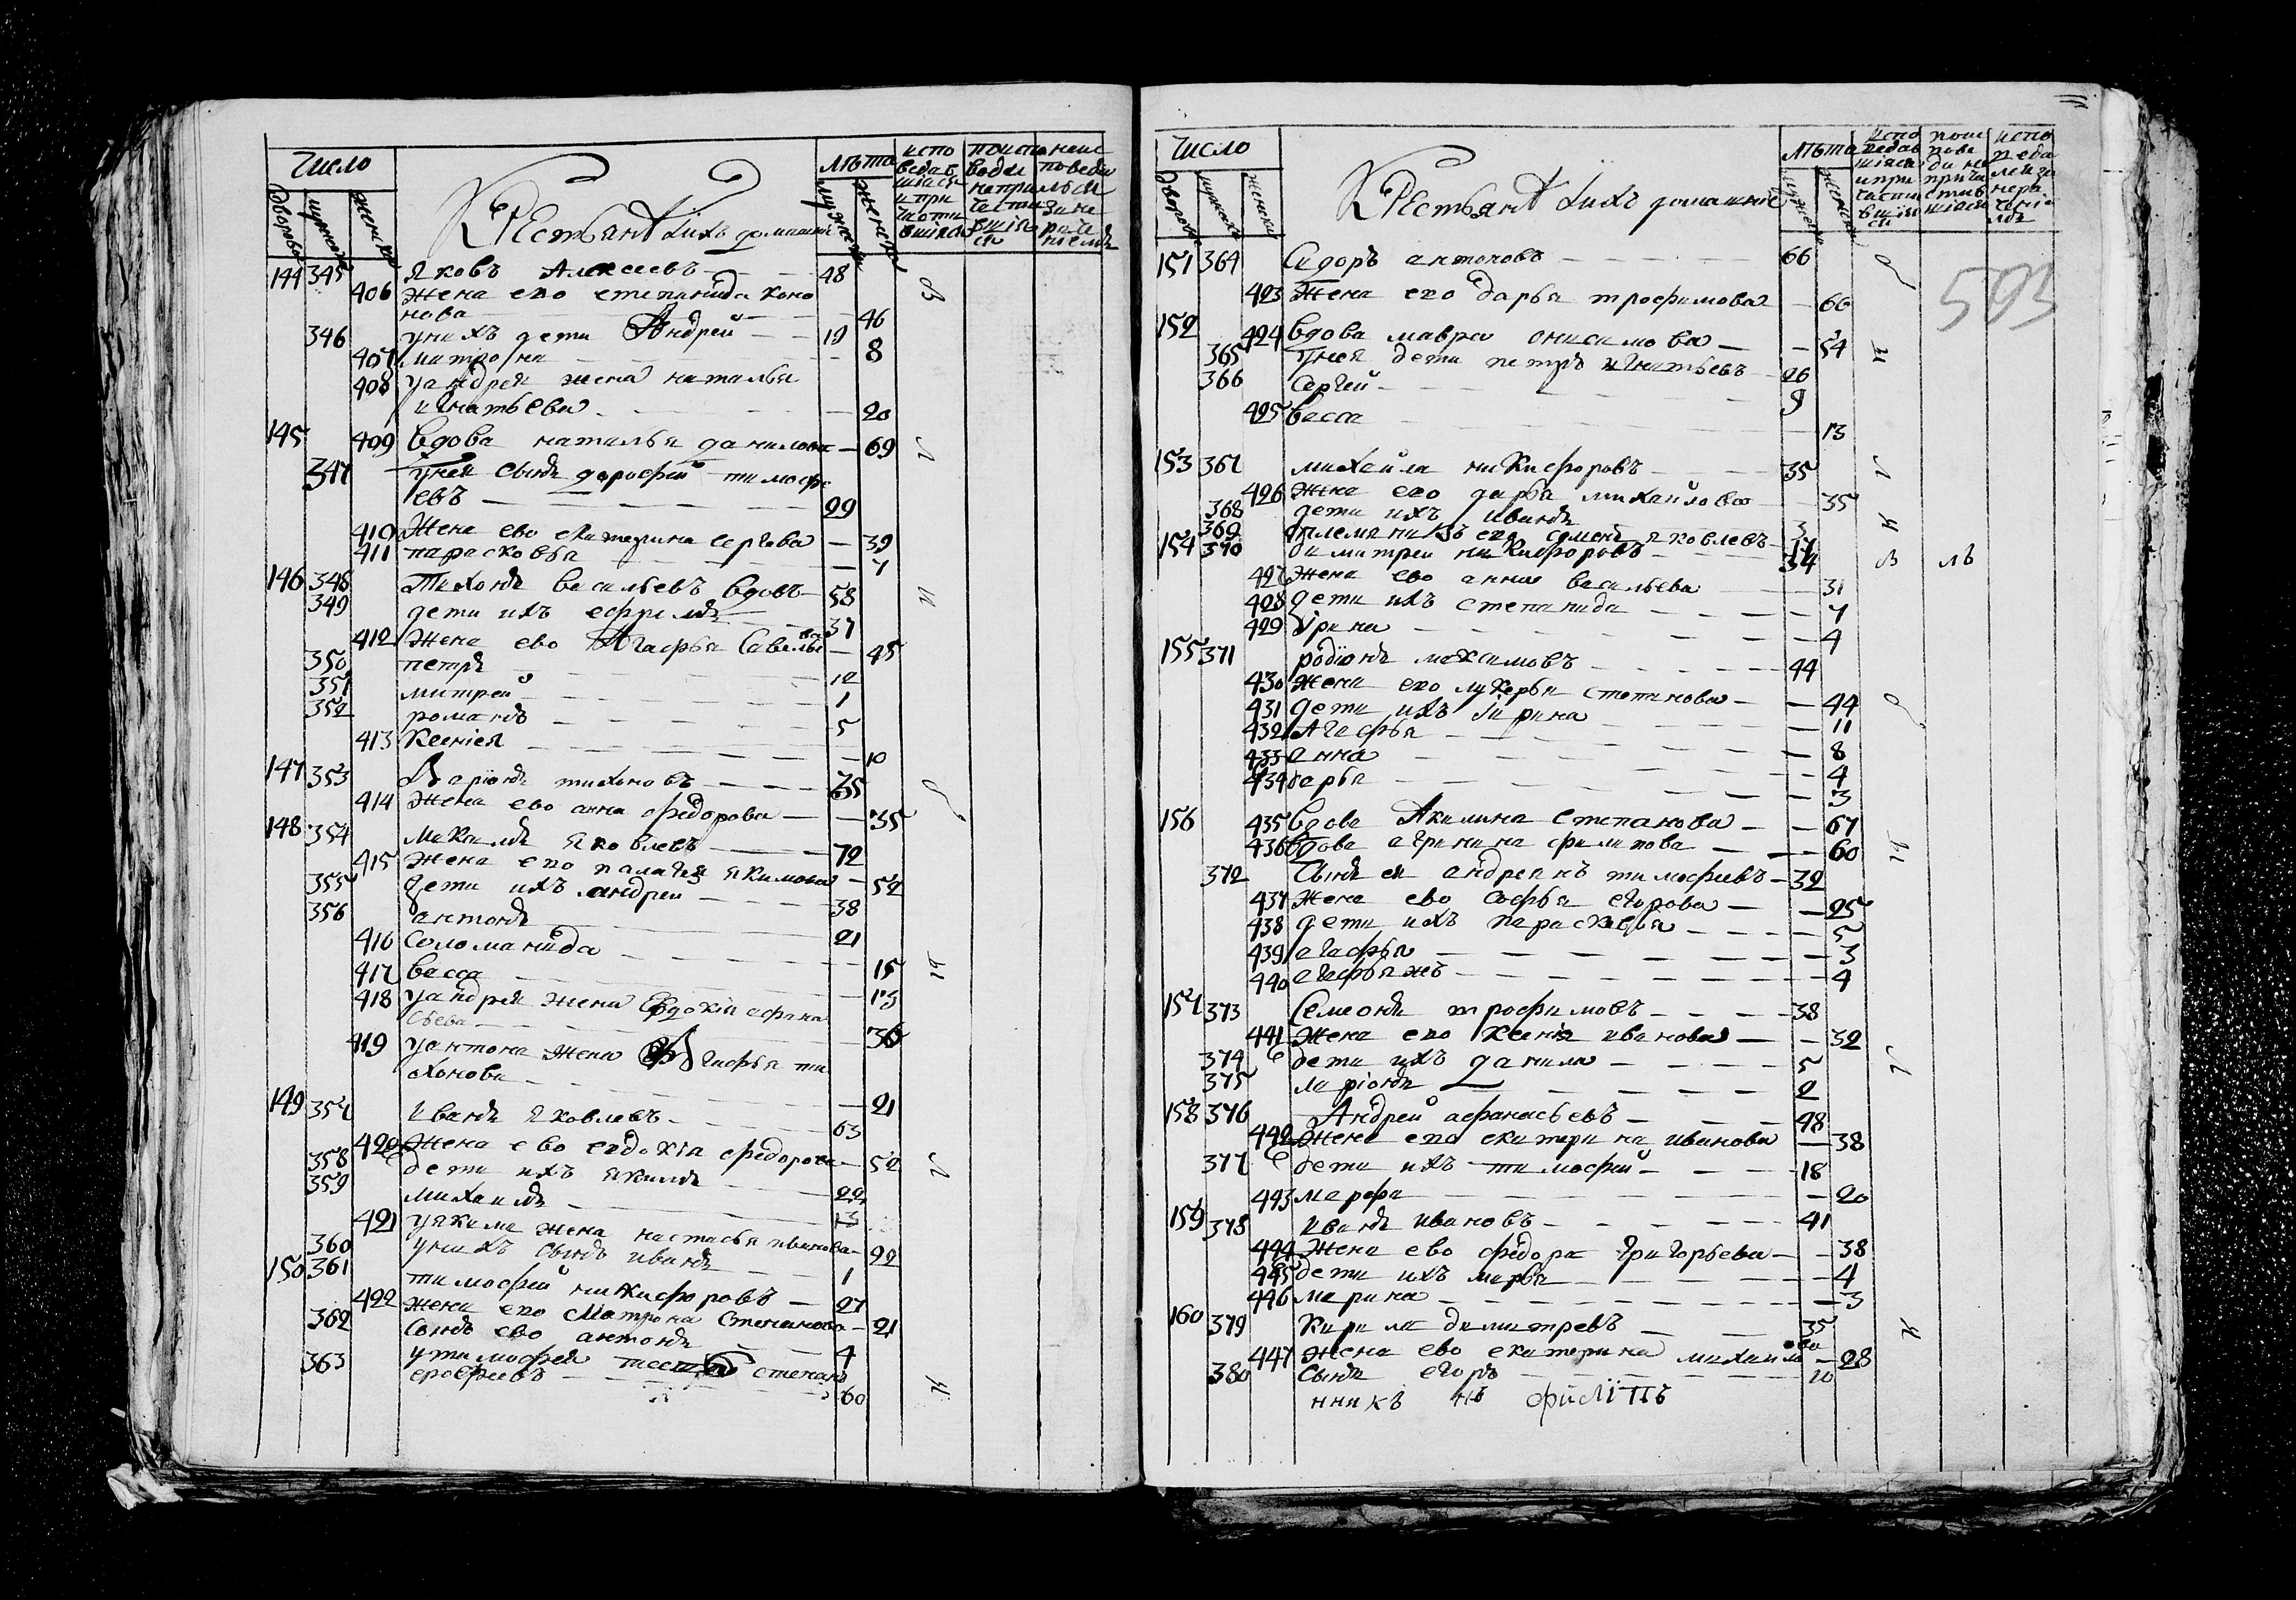 Число
КРЕстьянт ѵихъ домашние
лѣта
144 345 Яковъ Алексеевъ 48
406 жена ево степанида коно
нова 46
346 унихъ дети Андрей 19
407 матрона 8
408 уандрея жена наталья
игнатьева 20
145 409 вдова наталья данилова 69
347 унея сынъ дорофей тимофе
евъ 29
410 Жена ево екатерина сергева 39
411 парасковья 7
146 348 Тихонъ васильевъ вдовъ 58
349 дети ихъ ефримъ 37
412 Жена ево Агафья Савелье
ва 45
350 петръ 12
351 митрей 1
352 романъ 5
413 Ксенiея 10
147 353 Ларiонъ тихоновъ 35
414 Жена ево анна федорова 35
148 354 Максимъ Яковлевъ 72
415 Жена ево палагея якимова 52
355 дети ихъ андрей 38
356 антонъ 21
416 Соломанида 15
417 васса 13
418 уандрея жена Евдокiя афана
сьева 36
419 уантона жена Агафья ти
хонова 21
149 357 Иванъ Яковлевъ 63
420 Жена ево евдокiя федорова 52
358 дети ихъ якимъ 22
359 михаилъ 13
421 уякима жена настасья иванова 22
360 унихъ сынъ иванъ 1
150 361 тимофей никифоровъ 27
422 жена ево Матрона Степанова 21
362 сынъ ево антонъ 4
363 утимофея тесть степанъ
ерофеевъ 60
Число
КРЕстьянт ѵихъ домашние
лѣта
593
151 364 Сидоръ антоновъ 66
423 Жена ево дарья трофимова 66
152 424 вдова мавра онисимова 54
365 унея дети петръ игнатьевъ 26
366 Сергей 9
425 васса 13
153 367 михайла никифоровъ 35
426 Жена ево дарья михайлова 35
368 дети ихъ иванъ 3
369 племяникъ ево семенъ яковлевъ 17
154 370 димитрей никифоровъ 34
427 Жена ево анна васильева 31
428 дети ихъ степанида 7
429 Ирина 4
155 371 родiонъ максимовъ 44
430 Жена ево лукерья степанова 44
431 дети ихъ Ирина 11
432 Агафья 8
433 анна 4
434 дарья 3
156 435 вдова Акилина Степанова 67
436 вдова агрипина филипова 60
372 Сынъ ея андреянъ тимофеевъ 32
437 Жена ево Софья егорова 25
438 дети ихъ парасковья 5
439 агафья 3
440 агафья жъ 4
157 373 Семеонъ трофимовъ 38
441 Жена ево Ксенiя иванова 32
374 дети ихъ данила 5
375 ларiонъ 2
158 376 Андрей афанасьевъ 48
442 Жена ево екатерина иванова 38
377 дети ихъ тимофей 18
443 марфа 20
159 378 Иванъ ивановъ 41
444 Жена ево федора григорьева 38
445 дети ихъ марья 4
446 марина 3
160 379 Кирила димитревъ 35
447 Жена ево екатерина михайло
ва 28
380 Сынъ егоръ 10
нникъ нъ филiппъ